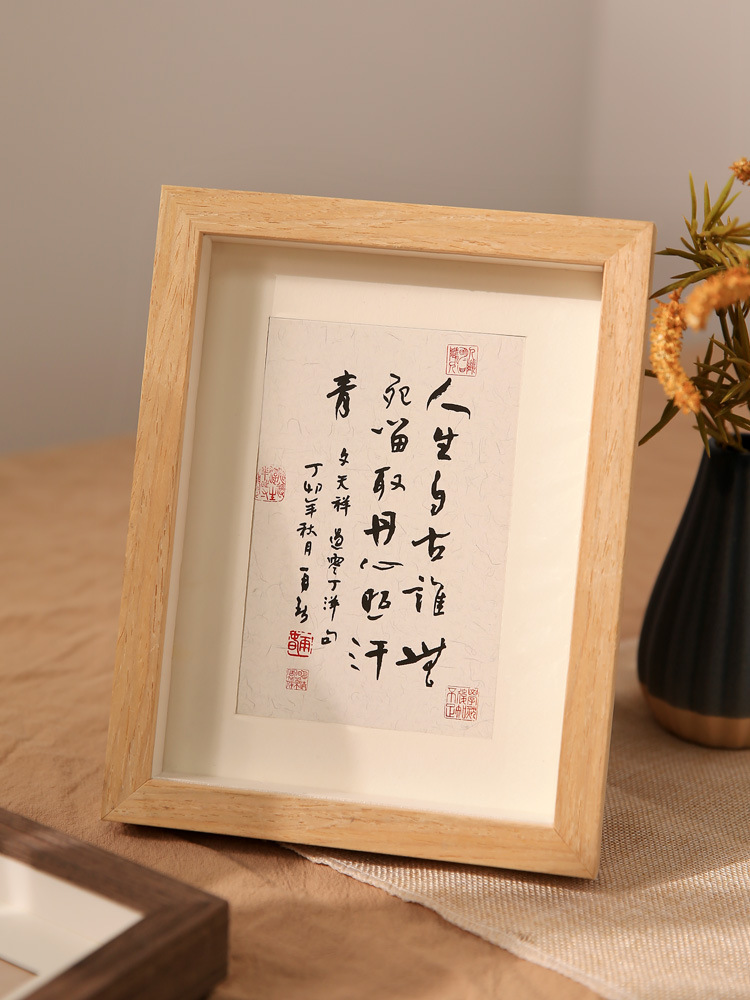 人生自古谁无
死留取丹心照汗
青
文天祥 过零丁洋 句
丁卯年秋月